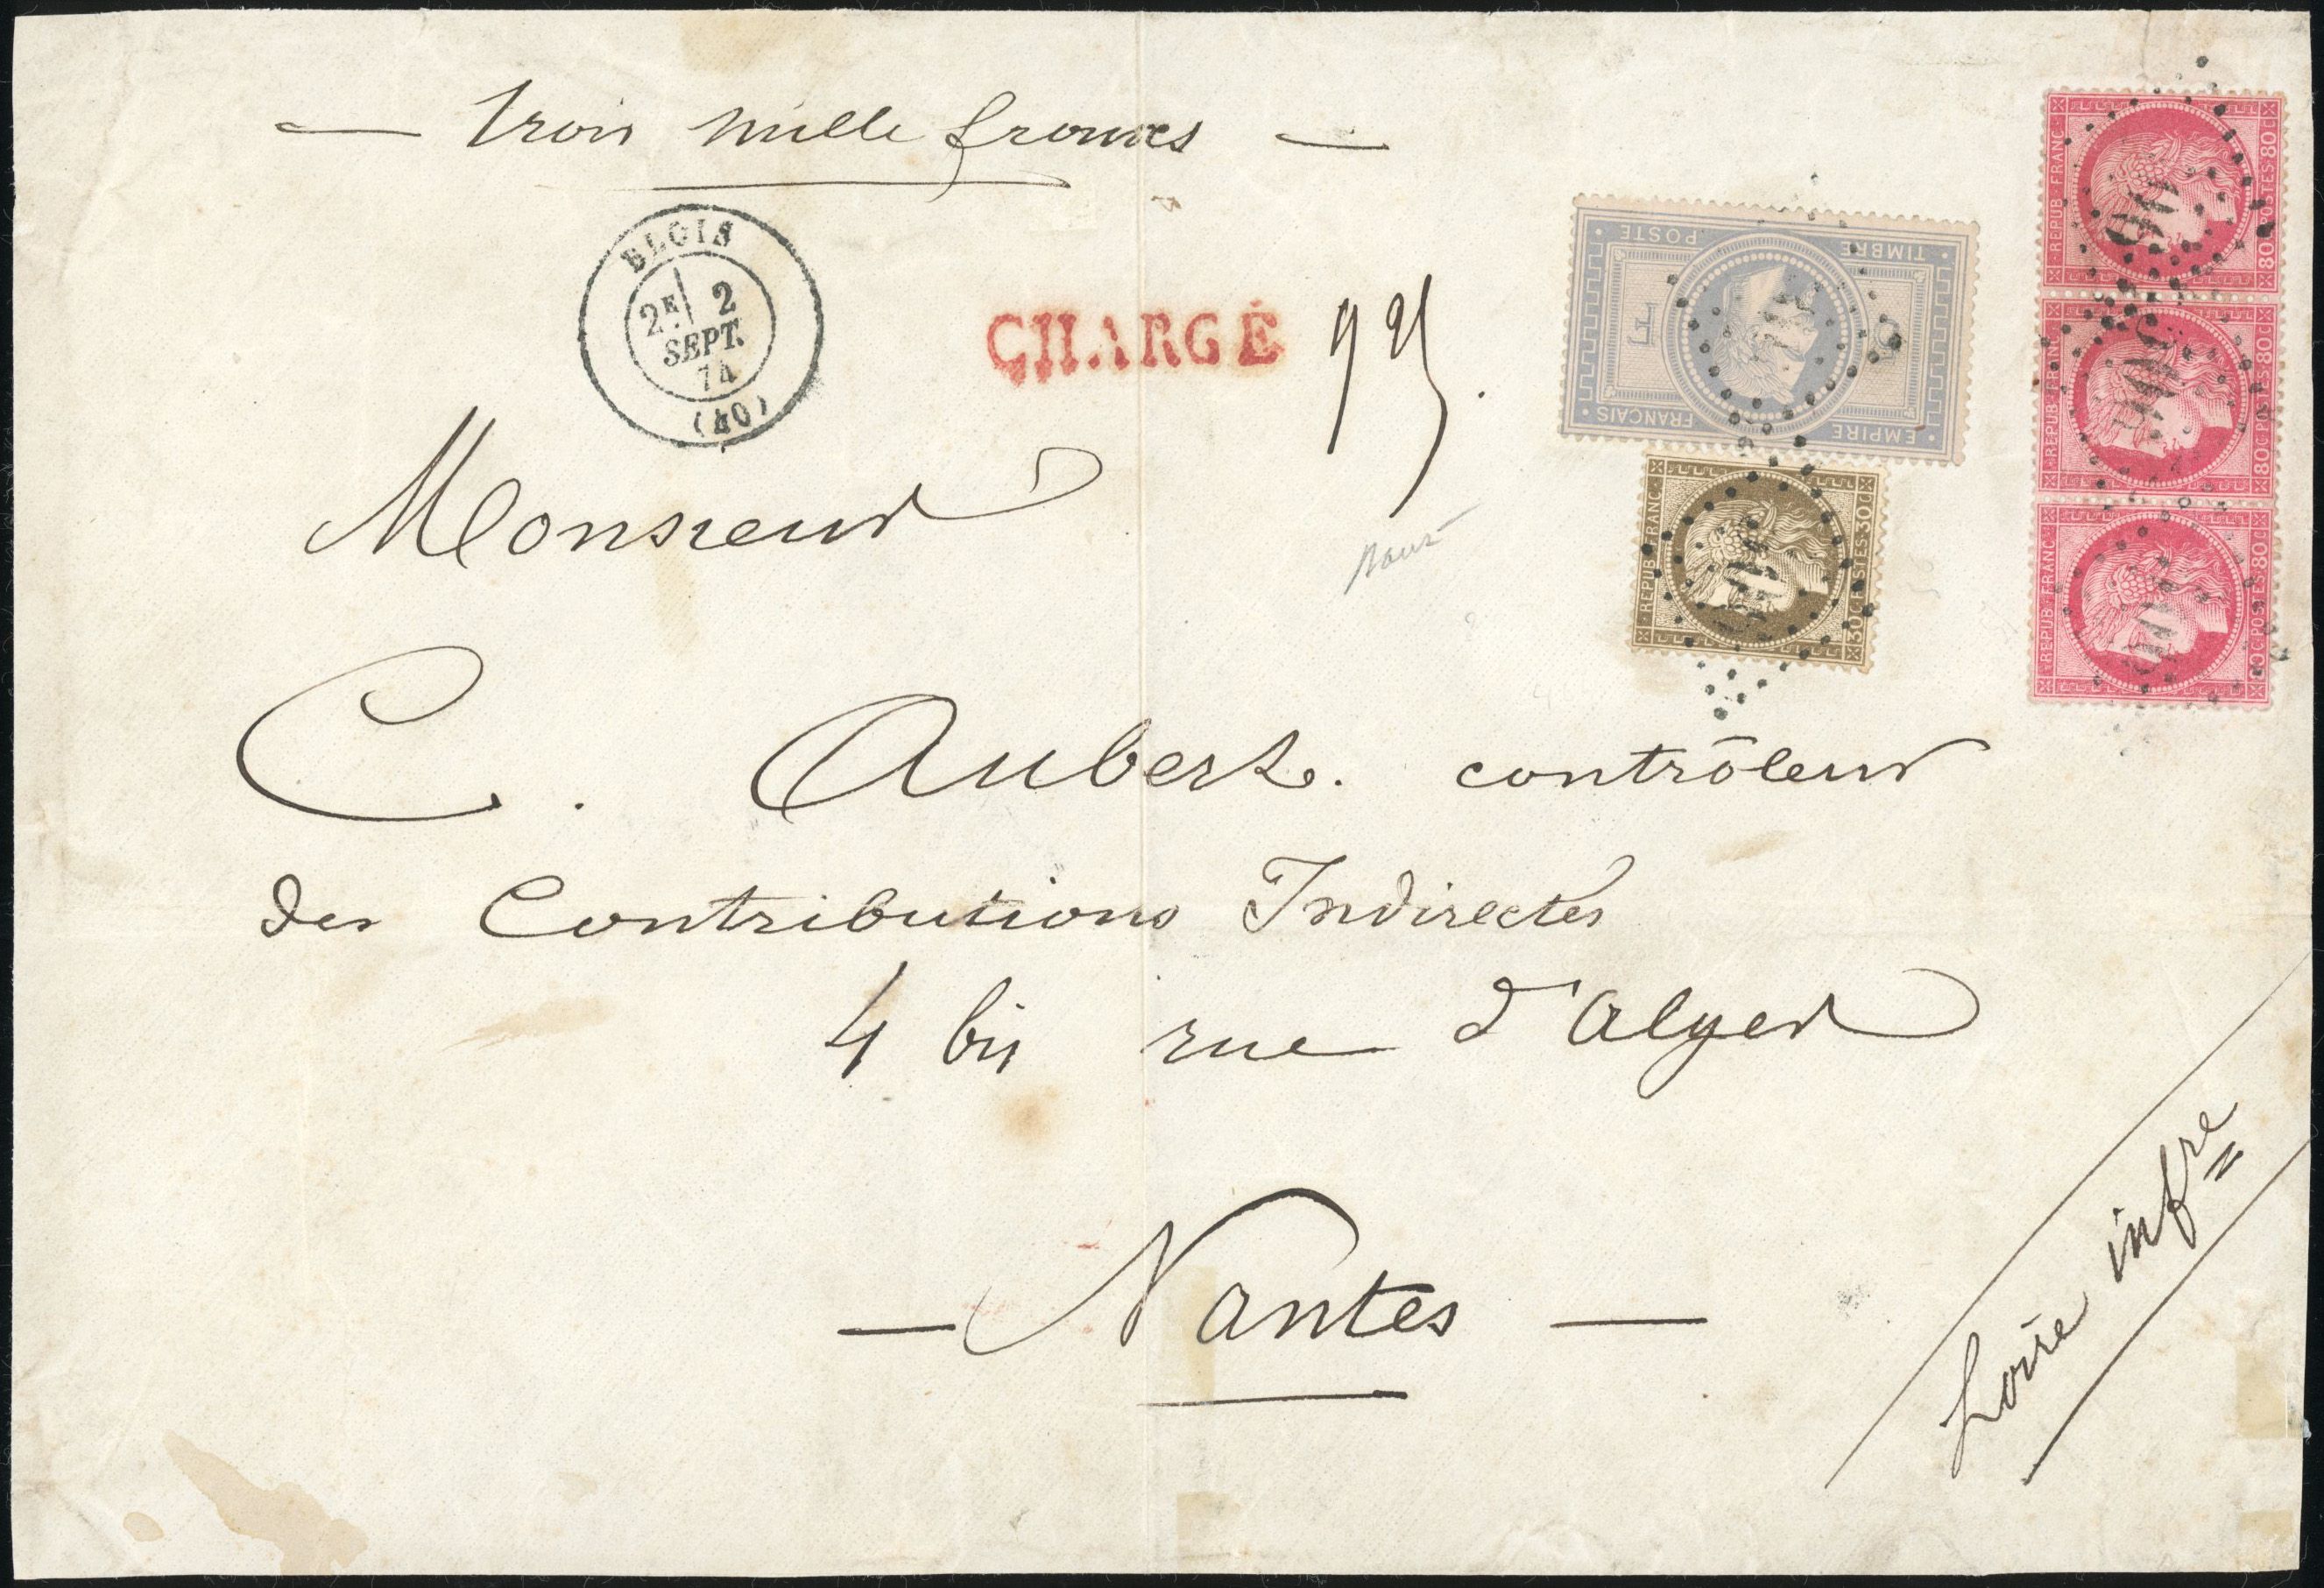 — trois mille francs —
BLOIS
2E 2
SEPT.
74
(40)
CHARGÉ
Monsieur
C. Aubert. contrôleur
des Contributions Indirectes
4 bis rue d'Alger
— Nantes —
Loire infre
TIMBRE POSTE
5 F
EMPIRE FRANÇAIS
REPUB. FRANC.
30 C. POSTES 30 C.
REPUB. FRANC.
80 C. POSTES 80 C.
REPUB. FRANC.
80 C. POSTES 80 C.
REPUB. FRANC.
80 C. POSTES 80 C.